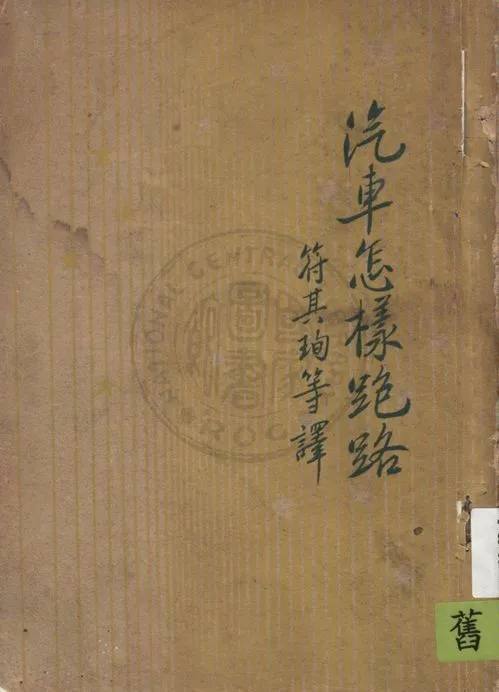 汽車怎樣跑路
符其珣等譯
NATIONAL CENTRAL
R.O.C.
圖
書
舊